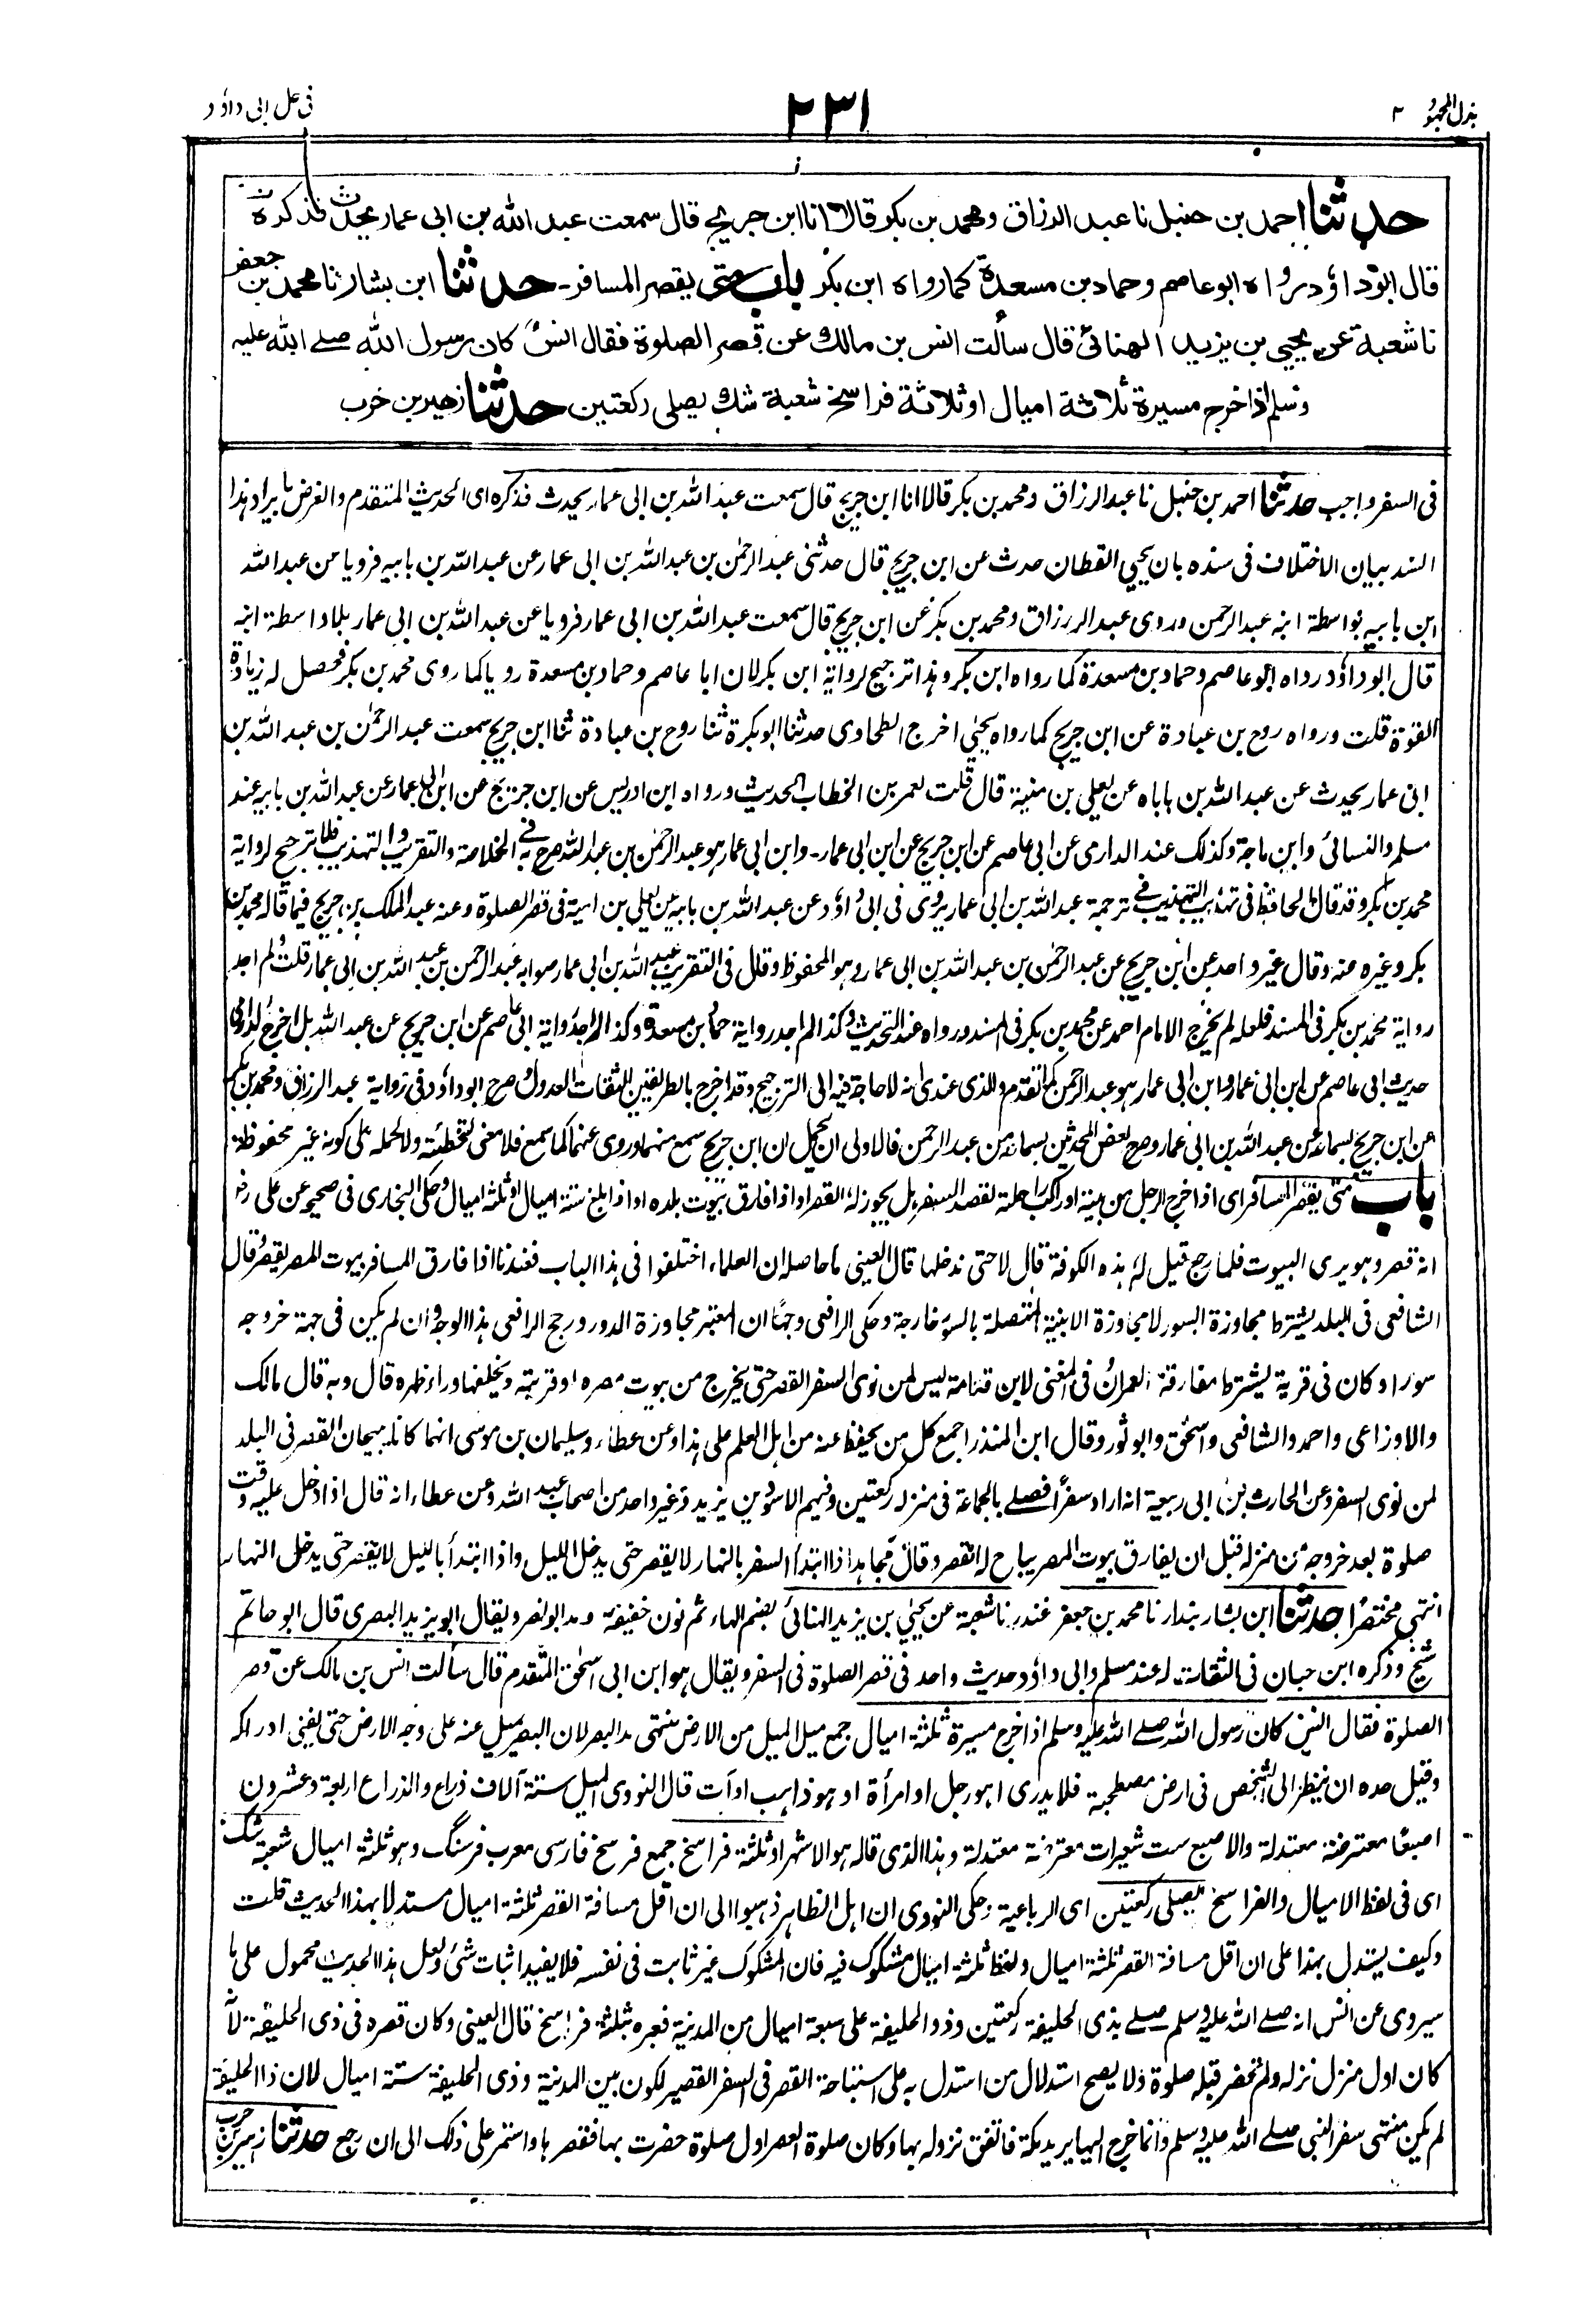 بذل المجهود ٢
٢٣١
فى حل ابى داؤد
حدثنا احمد بن حنبل نا عبد الرزاق ومحمد بن بكر قالا انا ابن جريج قال سمعت عبد الله بن ابى عمار يحدث فذكره
قال ابو داؤد رواه ابو عاصم وحماد بن مسعدة كما رواه ابن بكر باب متى يقصر المسافر۔ حدثنا ابن بشار نا محمد بن جعفر
نا شعبة عن يحيى بن يزيد الهنائى قال سألت انس بن مالك عن قصر الصلوة فقال انس كان رسول الله صلے الله عليه
وسلم اذا خرج مسيرة ثلاثة اميال او ثلاثة فراسخ شعبة شك يصلى ركعتين حدثنا زهير بن حرب
فى السفر واجب حدثنا احمد بن حنبل نا عبد الرزاق ومحمد بن بكر قالا انا ابن جريج قال سمعت عبد الله بن ابى عمار يحدث فذكره اى الحديث المتقدم والغرض بايراد هذا
السند بيان الاختلاف فى سنده بان يحيي القطان حدث عن ابن جريج قال حدثنى عبد الرحمٰن بن عبد الله بن ابى عمار عن عبد الله بن بابيه فرويا عن عبد الله
ابن بابيه بواسطة ابنه عبد الرحمن وروى عبد الرزاق ومحمد بن بكر عن ابن جريج قال سمعت عبد الله بن ابى عمار فرويا عن عبد الله بن ابى عمار بلا واسطة ابنه
قال ابو داؤد رواه ابو عاصم وحماد بن مسعدة كما رواه ابن بكر وهذا ترجيح لرواية ابن بكر لان ابا عاصم وحماد بن مسعدة رويا كما روى محمد بن بكر فحصل له زيادة
القوة قلت ورواه روح بن عبادة عن ابن جريج كما رواه يحيٰي اخرج الطحاوى حدثنا ابو بكرة ثنا روح بن عبادة ثنا ابن جريج سمعت عبد الرحمٰن بن عبد الله بن
ابى عمار يحدث عن عبد الله بن باباه عن يعلي بن منية قال قلت لعمر بن الخطاب الحديث ورواه ابن ادريس عن ابن جريج عن ابن ابى عمار عن عبد الله بن بابيه عند
مسلم والنسائى وابن ماجة وكذلك عند الدارمى عن ابى عاصم عن ابن جريج عن ابن ابى عمار۔ وابن ابى عمار هو عبد الرحمٰن بن عبد الله صرح به فى الخلاصة والتقريب والتهذيب فلا ترجيح لرواية
محمد بن بكر وقد قال الحافظ فى تهذيب التهذيب فى ترجمة عبد الله بن ابى عمار يروى فى ابى داؤد عن عبد الله بن بابيه عن يعلي بن امية فى قصر الصلوة وعنه عبد الملك بن جريج فيما قاله محمد بن
بكر وغيره عنه وقال غير واحد عن ابن جريج عن عبد الرحمٰن بن عبد الله بن ابى عمار وهو المحفوظ وقال فى التقريب عبد الله بن ابى عمار صوابه عبد الرحمن بن عبد الله بن ابى عمار قلت ولم اجد
رواية محمد بن بكر فى المسند فلعله لم يخرج الامام احمد عن محمد بن بكر فى المسند ورواه عند التحديث وكذا لم اجد رواية حماد بن مسعدة وكذا لم اجد رواية ابى عاصم عن ابن جريج عن عبد الله بل اخرج الدارمى
حديث ابى عاصم عن ابن ابى عمار وابن ابى عمار هو عبد الرحمن كما تقدم والذى عندى انه لا حاجة فيه الى الترجيح وقد اخرج بالطريقين الثقات العدول وصرح ابو داؤد فى رواية عبد الرزاق ومحمد بن بكر
عن ابن جريج بسماعه عن عبد الله بن ابى عمار وصرح بعض المحدثين بسماعه من عبد الرحمن فالاولى ان يحمل ان ابن جريج سمع منهما وروى عنهما كما سمع فلا معنى لتخطئته ولا لحمله على كونه غير محفوظ
باب متى يقصر المسافر اى اذا خرج الرجل من بيته او ركب راحلة لقصد السفر بل يجوز له القصر او اذا فارق بيوت بلده او اذا بلغ ستة اميال او ثلثة اميال وحكى البخارى فى صحيحه عن على رض
انه قصر وهو يرى البيوت فلما رجع قيل له هذه الكوفة قال لا حتى ندخلها قال العينى ما حاصله ان العلماء اختلفوا فى هذا الباب فعندنا اذا فارق المسافر بيوت المصر يقصر وقال
الشافعى فى البلد يشترط مجاوزة السور لا مجاوزة الابنية المتصلة بالسور خارجة وحكى الرافعى وجهًا ان المعتبر مجاوزة الدور ورجح الرافعى هذا الوجه وان لم يكن فى جهة خروجه
سور او كان فى قرية يشترط مفارقة العمران وفى المغنى لابن قدامة ليس لمن نوى السفر القصر حتى يخرج من بيوت مصره او قريته ويخلفها وراء ظهره قال وبه قال مالك
والاوزاعى واحمد والشافعى واسحٰق وابو ثور وقال ابن المنذر اجمع كل من يحفظ عنه من اهل العلم على هذا وعن عطاء وسليمان بن موسى انهما كانا يبيحان القصر فى البلد
لمن نوى السفر وعن الحارث بن ابى ربيعة انه اراد سفرًا فصلے بالجماعة فى منزله ركعتين وفيهم الاسود بن يزيد وغير واحد من اصحاب عبد الله وعن عطاء انه قال اذا دخل عليه وقت
صلوة بعد خروجه من منزله قبل ان يفارق بيوت المصر يباح له القصر وقال مجاهد اذا ابتدأ السفر بالنهار لا يقصر حتى يدخل الليل واذا ابتدأ بالليل لا يقصر حتى يدخل النهار
انتهى مختصرًا حدثنا ابن بشار بندار نا محمد بن جعفر غندر نا شعبة عن يحيٰي بن يزيد الهنائى بضم الهاء ثم نون خفيفة ومد ابو نصر ويقال ابو يزيد البصرى قال ابو حاتم
شيخ وذكره ابن حبان فى الثقات۔ له عند مسلم وابى داؤد حديث واحد فى قصر الصلوة فى السفر ويقال هو ابن ابى اسحٰق المتقدم قال سألت انس بن مالك عن قصر
الصلوة فقال انس كان رسول الله صلے الله عليه وسلم اذا خرج مسيرة ثلثة اميال جمع ميل الميل من الارض منتهى مد البصر لان البصر يميل عنه على وجه الارض حتى يفنى ادراكه
وقيل حده ان ينظر الى الشخص فى ارض مصطحبة فلا يدرى اهو رجل او امرأة او هو ذاهب او آت قال النووى الميل ستة آلاف ذراع والذراع اربعة وعشرون
اصبعًا معترضة معتدلة والاصبع ست شعيرات معترضة معتدلة وهذا الذى قاله هو الاشهر او ثلثة فراسخ جمع فرسخ فارسى معرب فرسنگ وهو ثلثة اميال شعبة شك
اى فى لفظ الاميال والفراسخ يصلى ركعتين اى الرباعية وحكى النووى ان اهل الظاهر ذهبوا الى ان اقل مسافة القصر ثلثة اميال مستدلا بهذا الحديث قلت
وكيف يستدل بهذا على ان اقل مسافة القصر ثلثة اميال ولفظ ثلثة اميال مشكوك فيه فان المشكوك غير ثابت فى نفسه فلا يفيد اثبات شئ ولعل هذا الحديث محمول على ما
سيروى عن انس انه صلے الله عليه وسلم صلے بذى الحليفة ركعتين وذو الحليفة على سبعة اميال من المدينة فعبره بثلثة فراسخ قال العينى وكان قصره فى ذى الحليفة لأنه
كان اول منزل نزله ولم تحضر قبله صلوة ولا يصح استدلال من استدل به على استباحة القصر فى السفر القصير لكون بين المدينة وذى الحليفة ستة اميال لان ذا الحليفة
لم يكن منتهى سفر النبى صلے الله عليه وسلم وانما خرج اليها يريد مكة فاتفق نزوله بها وكان صلوة العصر اول صلوة حضرت بها فقصرها واستمر على ذلك الى ان رجع حدثنا زهير بن حرب